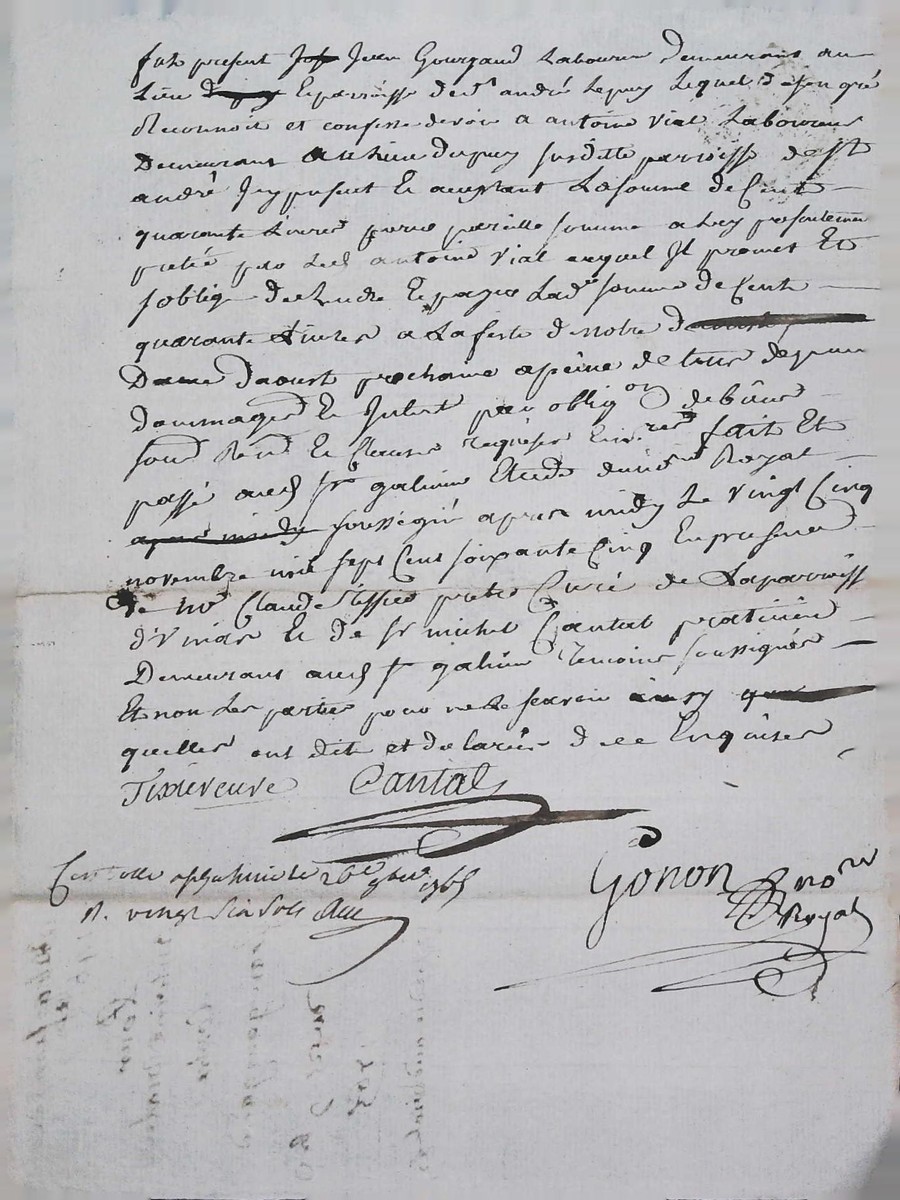 fut present Jean Gourgaud Laboureur Demeurant au
Lieu Et parroisse de st andré Lepuy Lequel de son gré
Reconnoit et confesse devoir a antoine Vial Laboureur
Demeurant au Lieu Dupuy susditte parroisse de st
andré Jcy present Et aceptant La somme de Cent
quarante Livres pour pareille somme a Luy presentement
pretée par Led antoine Vial auquel Jl promet Et
soblige de Rendre Et payer Lade somme de Cent
quarante Livres a La feste de notre
Dame Daoust prochaine a peine de tous depens
dommages Et Jnterest par obligon de biens
soum Renon Et Clauses Requises fait Et
passé aud st galmier Etude du nore Royal
soussigné apres midy Le vingt Cinq
novembre mil sept Cent soixante Cinq En presence
de mre Claude preter Curé de La parroisse
d'Virias Et de sr michel Cantal praticien
Demeurant aud st galmier Temoins soussignés
Et non Les parties pour ne le scavoir ainsy
quelles ont dit et declarées de ce Enquises
Cantal
Gonon nore
Royal
Controllé a st galmier le 26e 9bre 1765
R. vingt six sols